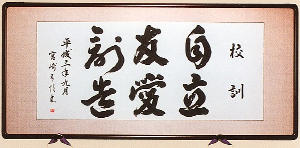 校訓
自立
友愛
創造
平成二年九月